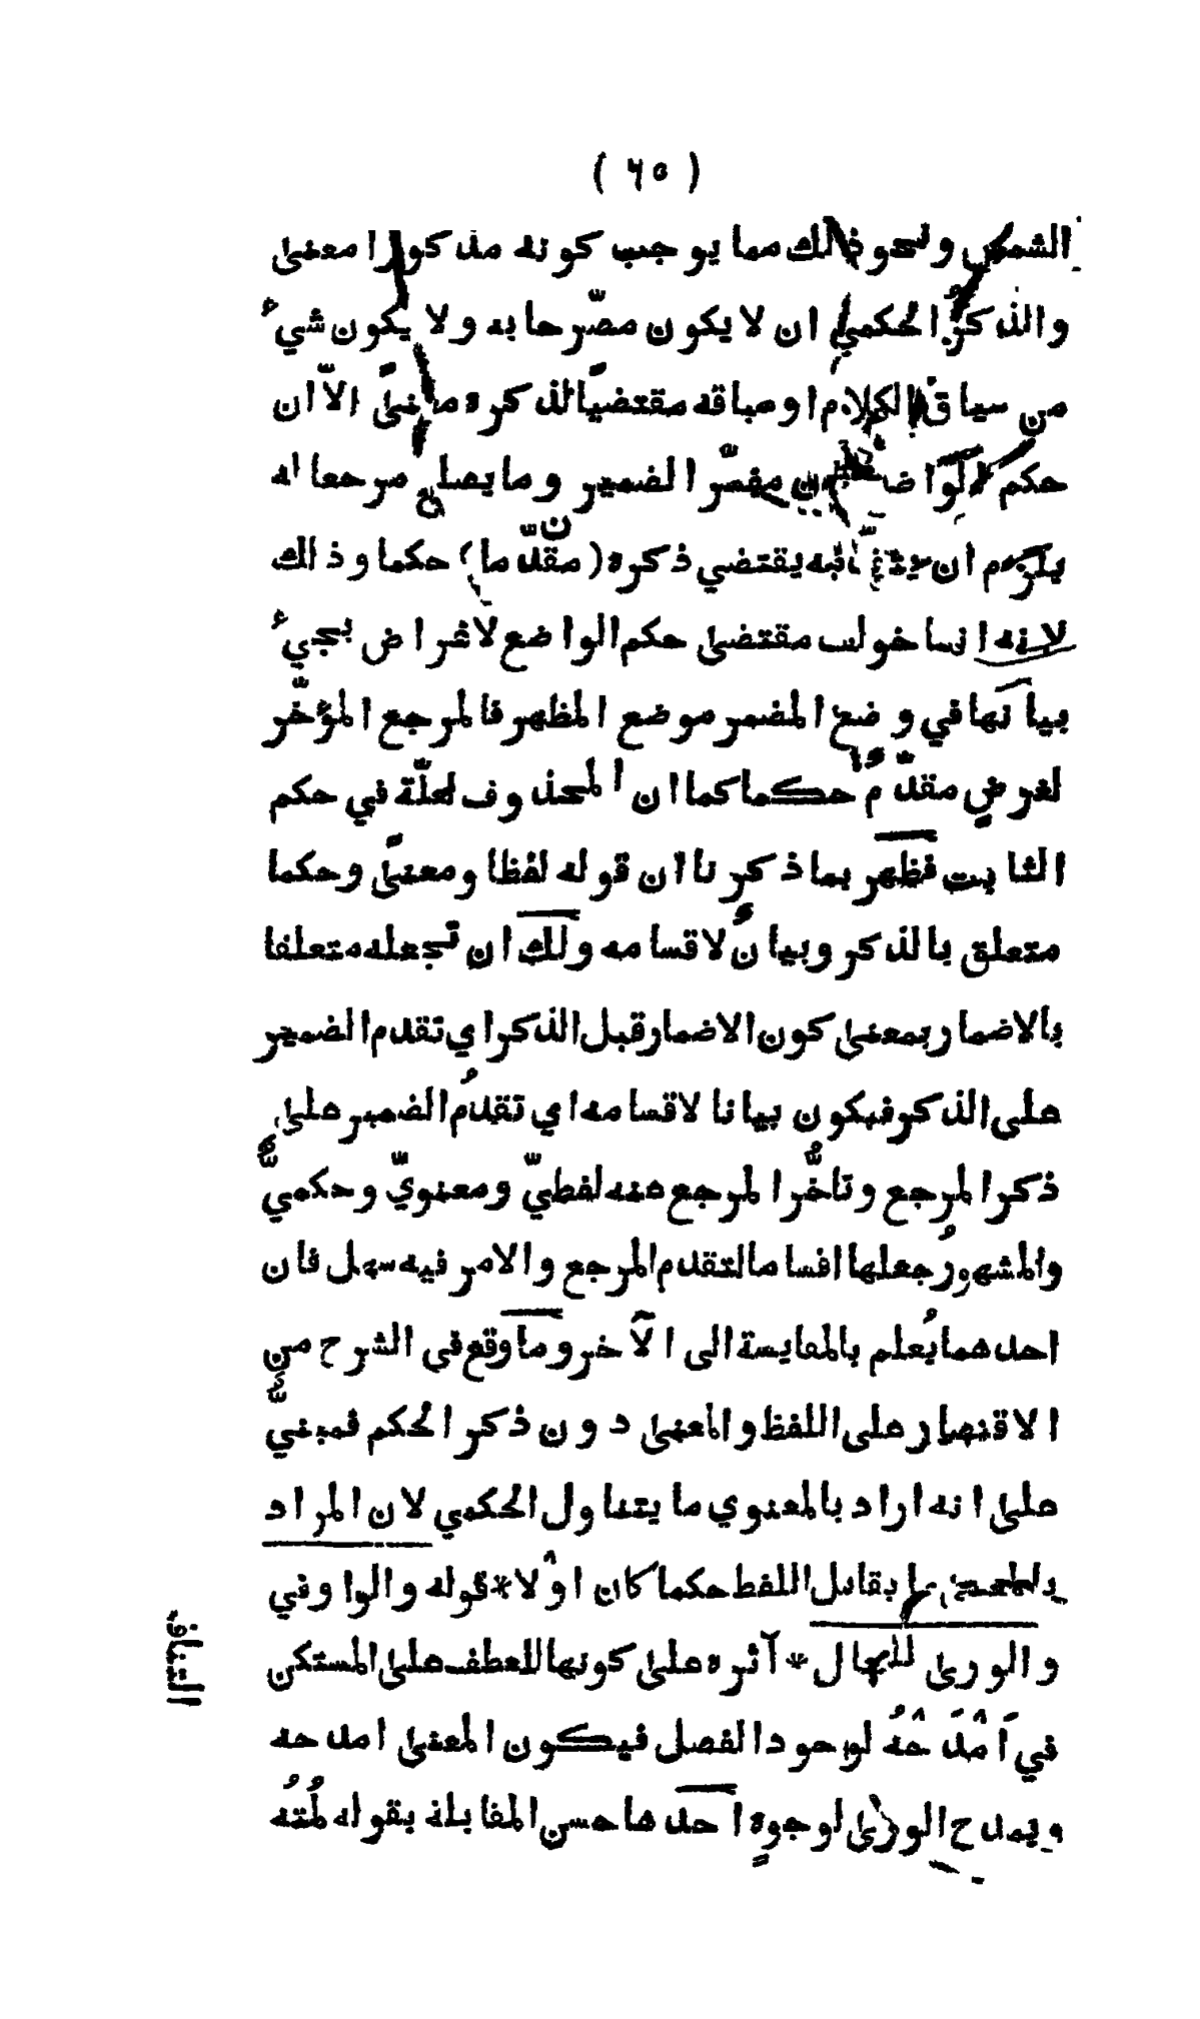 ( ٦٥ )
الشمس ونحو ذالك مما يوجب كونه مذكورا معنى
والذكرُ الحكمي ان لا يكون مصّرحا به ولا يكون شيء
من سياق الكلام او سباقه مقتضيًا لذكره معنىً الاّ ان
حكم الواضع مفسّر الضمير وما يصلح مرجعا له
يلزم ان يقتضي ذكره (مقدّما) حكما وذالك
لانه انما خولف مقتضى حكم الواضع لاغراض يجيء
بيانها في وضع المضمر موضع المظهر فالمرجع المؤخّر
لغرضٍ مقدّمٌ حكما كما ان المحذوف لعلّة في حكم
الثابت فظهر بما ذكرنا ان قوله لفظا ومعنىً وحكما
متعلق بالذكر وبيانٌ لاقسامه ولك ان تجعله متعلقا
بالاضمار بمعنى كون الاضمار قبل الذكر اي تقدم الضمير
على الذكر فيكون بيانا لاقسامه اي تقدمُ الضمير على
ذكر المرجع وتاخُّر المرجع عنه لفظيّ ومعنويّ وحكميٌّ
والمشهورُ جعلها اقساما لتقدم المرجع والامر فيه سهل فان
احدهما يُعلم بالمقايسة الى الآخر وما وقع في الشرح من
الاقتصار على اللفظ والمعنى دون ذكر الحكم فمبنيٌّ
على انه اراد بالمعنوي ما يتناول الحكمي لان المراد
بالمعنى ما يقابل اللفظ حكما كان اوْلا * قوله والواو في
والورى للحال * آثره على كونها للعطف على المستكن
في اَمْدَحْهُ لوجود الفصل فيكون المعنى امدحه
ويمدح الورى لوجوهٍ احدها حسن المقابلة بقوله لُمْتُه
التنافر